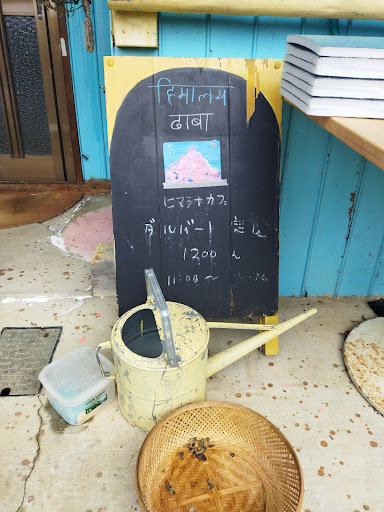 हिमालय
ढाबा
ヒマラヤカフェ
ダルバート定食
1200円
11:00〜